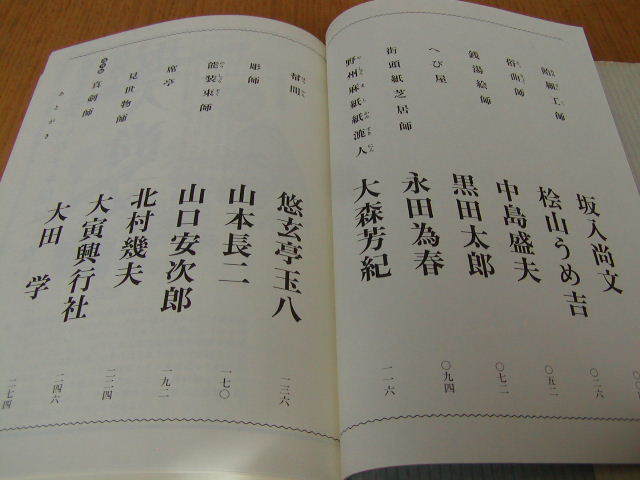 飴細工師 坂入尚文
俗曲師 桧山うめ吉 〇二六
銭湯絵師 中島盛夫 〇五二
へび屋 黒田太郎 〇七二
街頭紙芝居師 永田為春 〇九四
野州麻紙紙漉人 大森芳紀 一一六
幇間 悠玄亭玉八 一三六
彫師 山本長二 一七〇
能装束師 山口安次郎 一九二
席亭 北村幾夫 二二四
見世物師 大寅興行社 二四六
真剣師 大田 学 二七四
あとがき